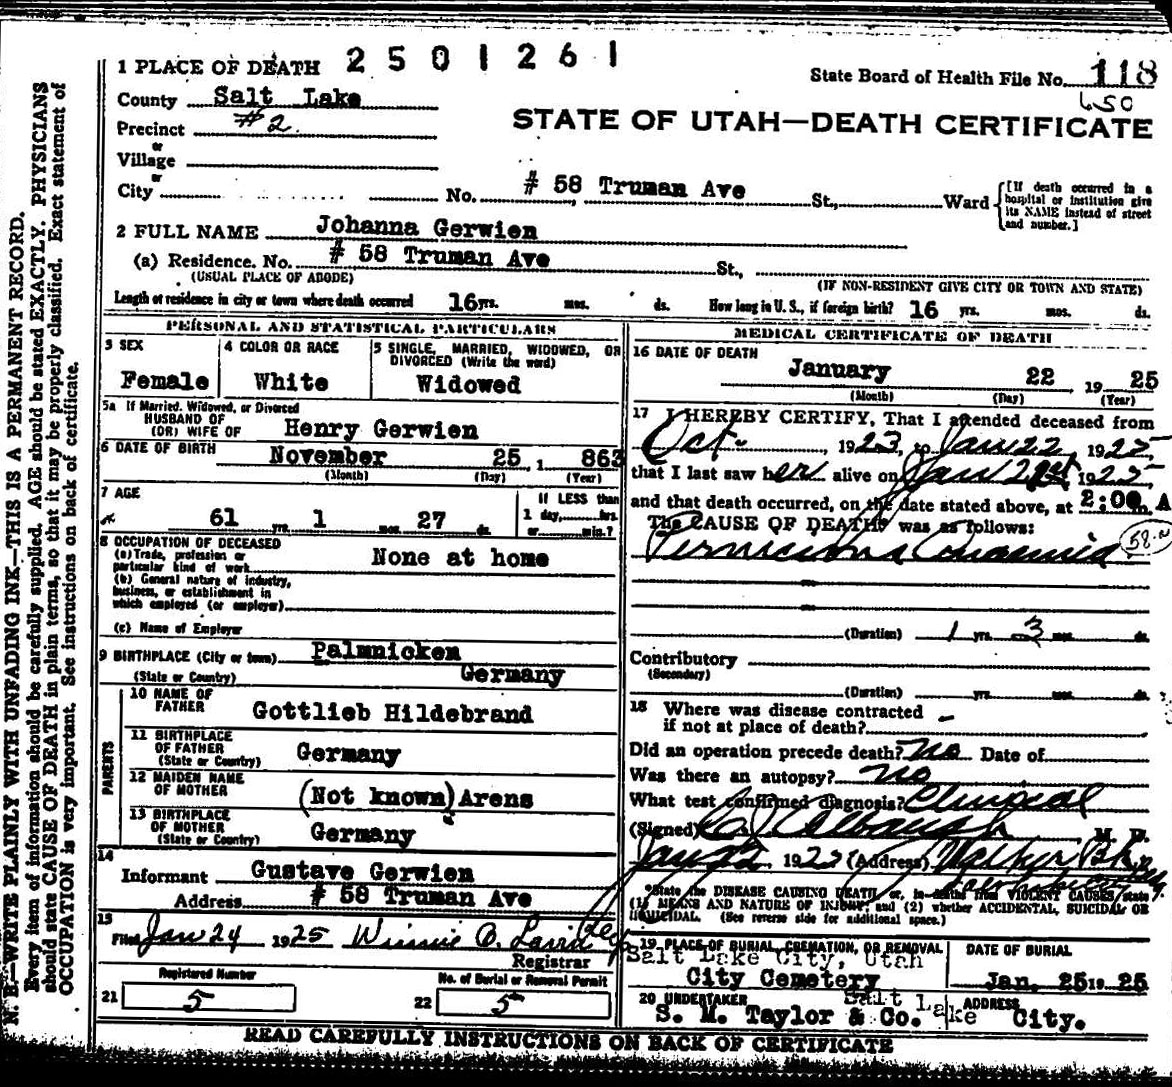 2501261
1 PLACE OF DEATH
State Board of Health File No. 118
650
County Salt Lake
STATE OF UTAH—DEATH CERTIFICATE
Precinct #2.
or
Village
or
City No. # 58 Truman Ave St., Ward
[If death occurred in a hospital or institution give its NAME instead of street and number.]
2 FULL NAME Johanna Gerwien
(a) Residence. No. # 58 Truman Ave St.,
(USUAL PLACE OF ABODE) (IF NON-RESIDENT GIVE CITY OR TOWN AND STATE)
Length of residence in city or town where death occurred 16 yrs. mos. ds. How long in U. S., if foreign birth? 16 yrs. mos. ds.
PERSONAL AND STATISTICAL PARTICULARS
3 SEX
Female
4 COLOR OR RACE
White
5 SINGLE, MARRIED, WIDOWED, OR
DIVORCED (Write the word)
Widowed
5a If Married, Widowed, or Divorced
HUSBAND OF
(OR) WIFE OF Henry Gerwien
6 DATE OF BIRTH November 25, 1 863
(Month) (Day) (Year)
7 AGE
61 yrs. 1 mos. 27 ds.
If LESS than
1 day, hrs.
or min.?
8 OCCUPATION OF DECEASED
(a) Trade, profession or
particular kind of work None at home
(b) General nature of industry,
business, or establishment in
which employed (or employer)
(c) Name of Employer
9 BIRTHPLACE (City or town) Palmnicken
(State or Country) Germany
PARENTS
10 NAME OF
FATHER Gottlieb Hildebrand
11 BIRTHPLACE
OF FATHER
(State or Country) Germany
12 MAIDEN NAME
OF MOTHER (Not known) Arens
13 BIRTHPLACE
OF MOTHER
(State or Country) Germany
14
Informant Gustave Gerwien
Address # 58 Truman Ave
15
Filed Jan 24 1925 Winnie O.
Registrar
Registered Number No. of Burial or Removal Permit
21 5 22 5
MEDICAL CERTIFICATE OF DEATH
16 DATE OF DEATH
January 22 19 25
(Month) (Day) (Year)
17 I HEREBY CERTIFY, That I attended deceased from
Oct. 1923, to Jan 22, 1925
that I last saw her alive on Jan 21st 1925
and that death occurred, on the date stated above, at 2:00 A
m.
The CAUSE OF DEATH* was as follows:
Pernicious Anaemia 58-a
(Duration) 1 yrs. 3 mos. ds.
Contributory
(Secondary)
(Duration) yrs. mos. ds.
18 Where was disease contracted
if not at place of death? -
Did an operation precede death? No Date of
Was there an autopsy? no
What test confirmed diagnosis? Clinical
(Signed) M. D.
Jan 22 1925 (Address)
*State the DISEASE CAUSING DEATH, or, in deaths from VIOLENT CAUSES, state
(1) MEANS AND NATURE OF INJURY; and (2) whether ACCIDENTAL, SUICIDAL OR
HOMICIDAL. (See reverse side for additional space.)
19 PLACE OF BURIAL, CREMATION, OR REMOVAL
Salt Lake City, Utah
City Cemetery
DATE OF BURIAL
Jan. 25 19 25
20 UNDERTAKER
S. M. Taylor & Co.
ADDRESS
Salt Lake City.
READ CAREFULLY INSTRUCTIONS ON BACK OF CERTIFICATE
N. B.—WRITE PLAINLY WITH UNFADING INK—THIS IS A PERMANENT RECORD.
Every item of information should be carefully supplied. AGE should be stated EXACTLY. PHYSICIANS
should state CAUSE OF DEATH in plain terms, so that it may be properly classified. Exact statement of
OCCUPATION is very important. See instructions on back of certificate.